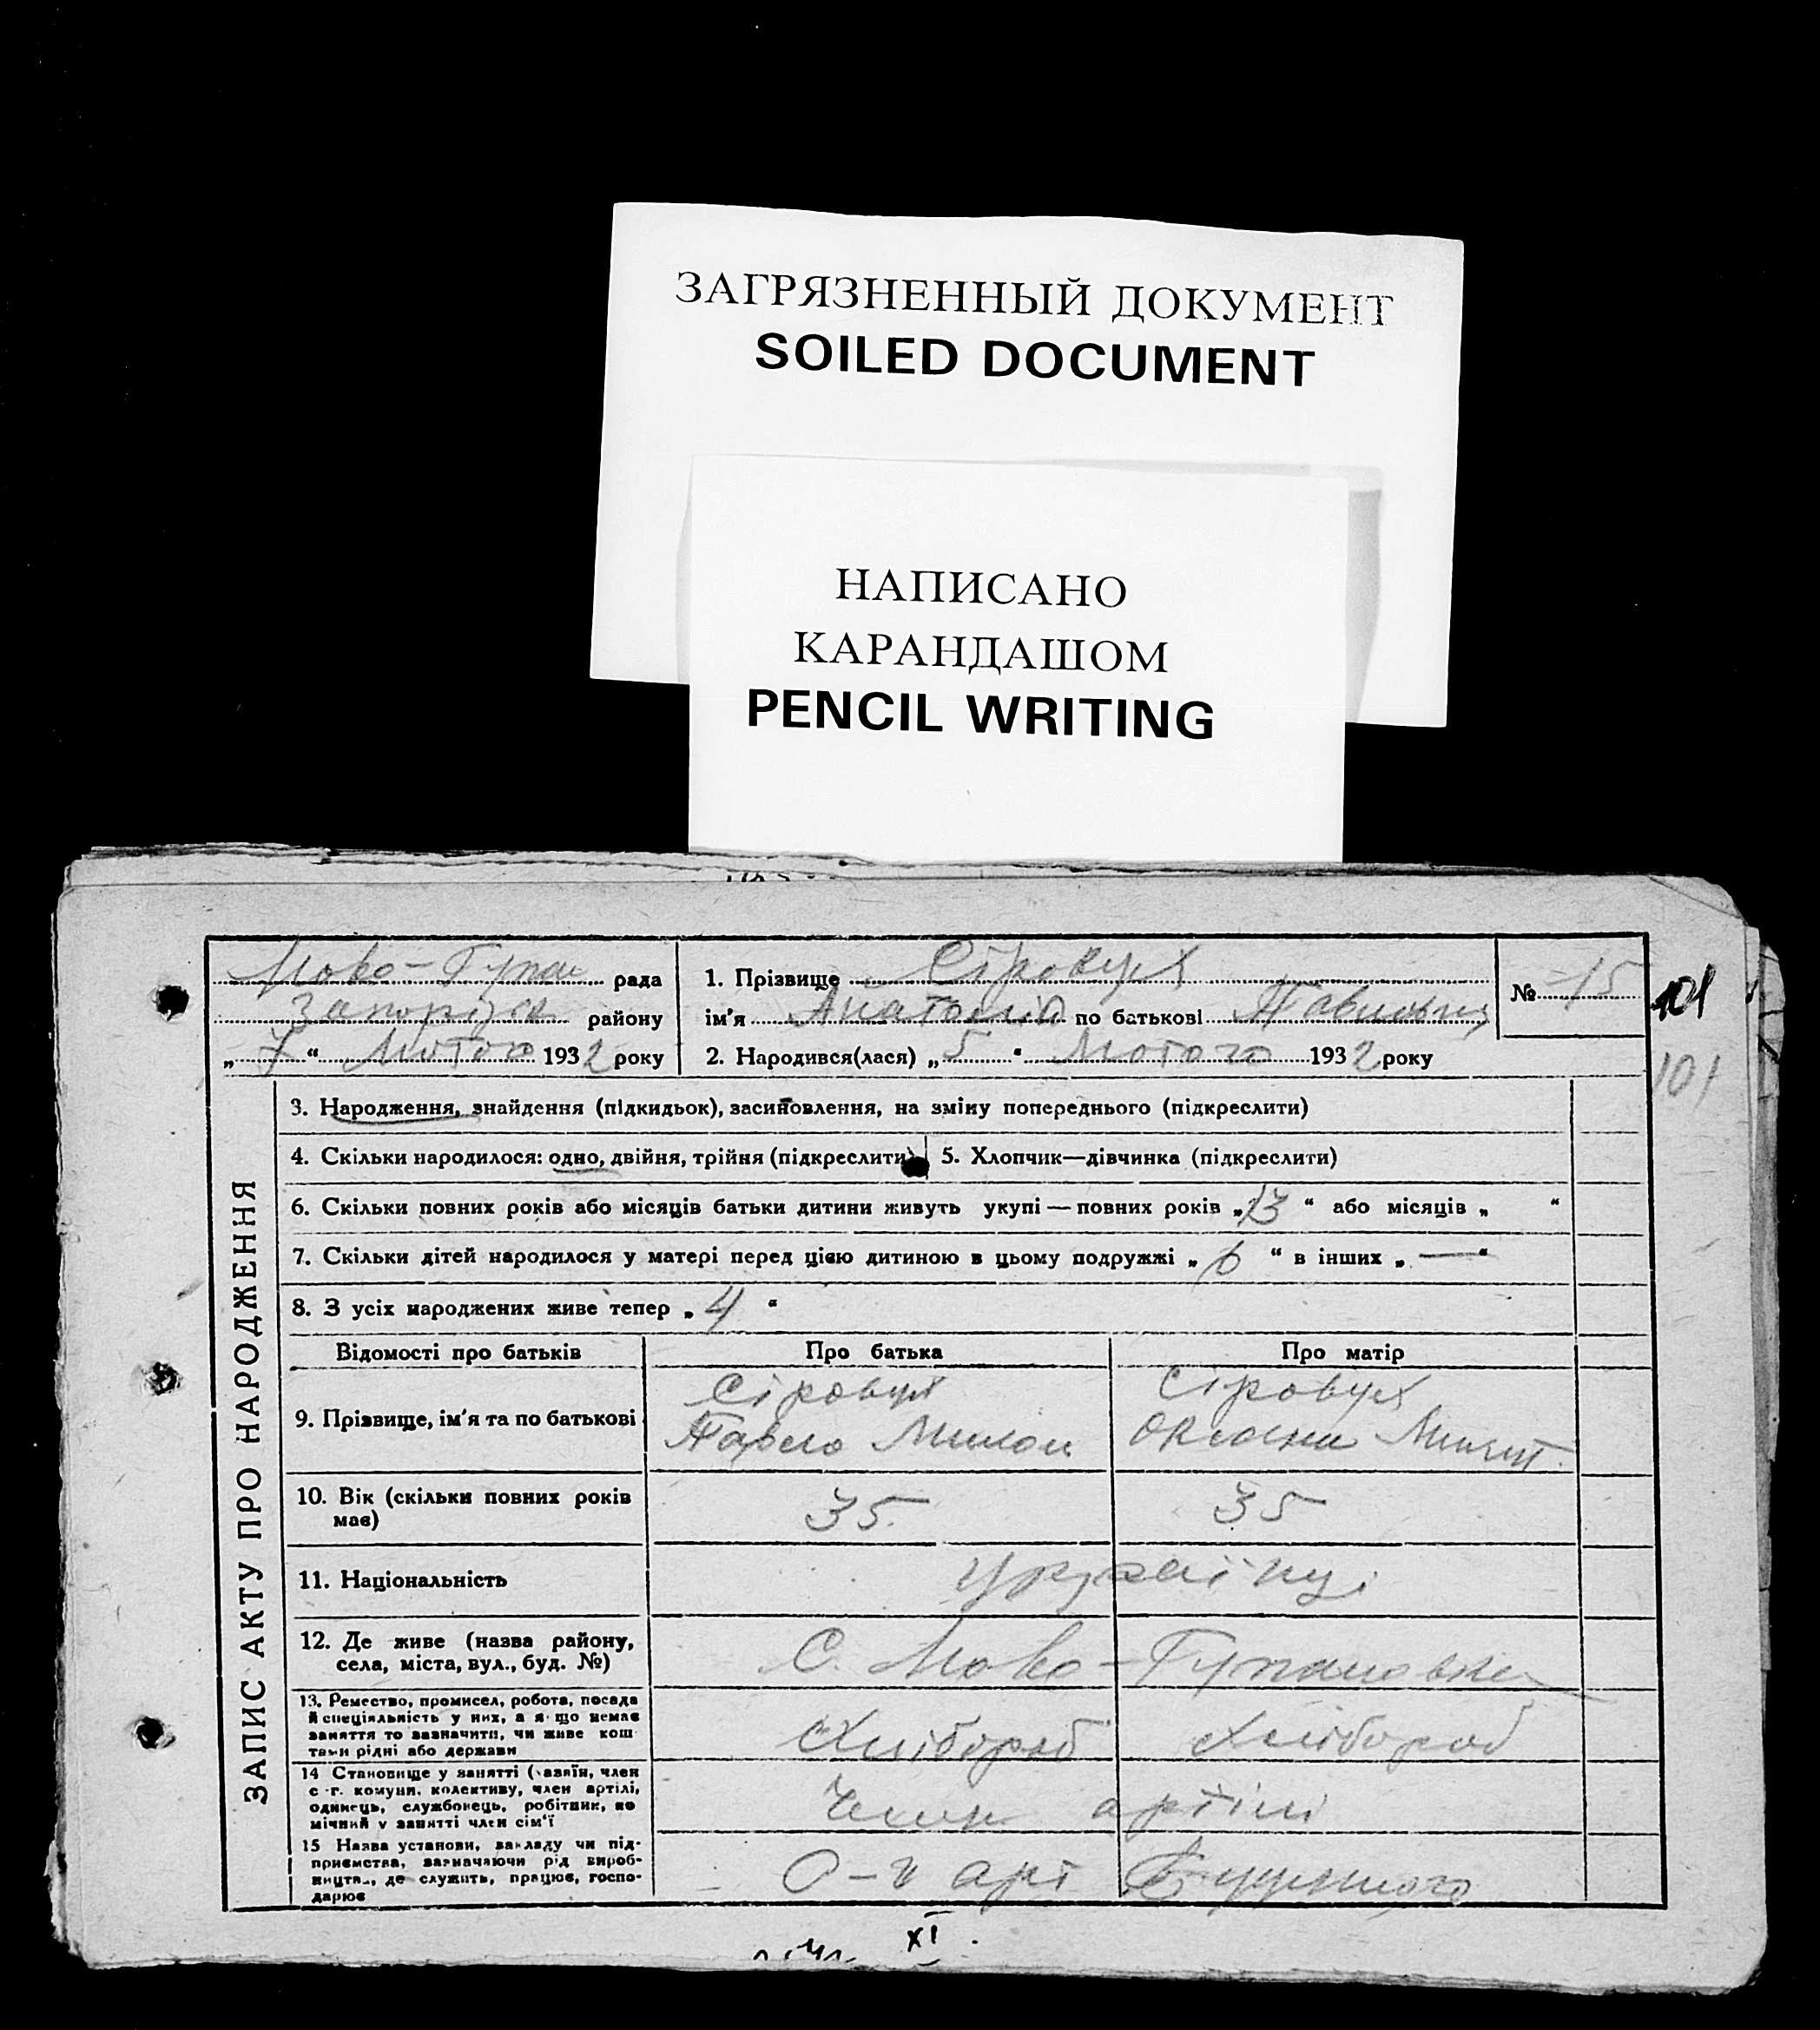 ЗАГРЯЗНЕННЫЙ ДОКУМЕНТ
SOILED DOCUMENT
НАПИСАНО
КАРАНДАШОМ
PENCIL WRITING
Ново-Гупал рада
Запорізьк району
„ 7 “ Лютого 1932 року
1. Прізвище Сіровух
ім'я Анатолій по батькові Павлович
2. Народився(лася) „ 5 “ Лютого 1932 року
№ 15
101
101
ЗАПИС АКТУ ПРО НАРОДЖЕННЯ
3. Народження, знайдення (підкидьок), засиновлення, на зміну попереднього (підкреслити)
4. Скільки народилося: одно, двійня, трійня (підкреслити)
5. Хлопчик—дівчинка (підкреслити)
6. Скільки повних років або місяців батьки дитини живуть укупі — повних років „ 13 “ або місяців „ “
7. Скільки дітей народилося у матері перед цією дитиною в цьому подружжі „ 6 “ в інших „ — “
8. З усіх народжених живе тепер „ 4 “
Відомості про батьків
Про батька
Про матір
9. Прізвище, ім'я та по батькові
Сіровух
Павло
Сіровух
Оксана
10. Вік (скільки повних років
має)
35
35
11. Національність
Українці
12. Де живе (назва району,
села, міста, вул., буд. №)
С. Ново-Гупаловка
13. Ремество, промисел, робота, посада
й спеціяльність у них, а якщо немає
заняття то зазначити, чи живе кош
тами рідні або держави
Хлібороб
Хлібороб
14 Становище у занятті (хазяїн, член
с.-г. комуни, колективу, член артілі,
одинець, службовець, робітник, по
мічний у занятті член сім'ї
Член артілі
15 Назва установи, закладу чи під-
приємства, зазначаючи рід вироб-
ництва, де служить, працює, госпо-
дарює
С-г арт Будьонного
XI